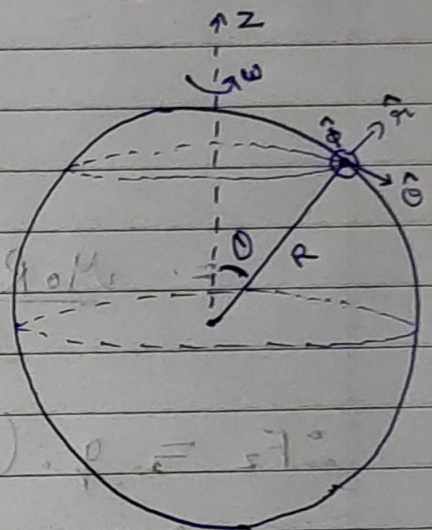 Z
ω
φ̂
r̂
θ̂
θ
R